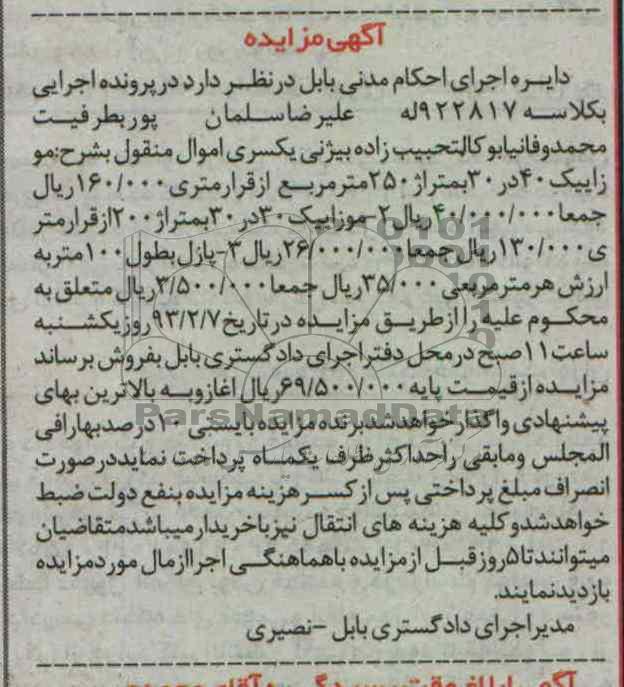 آگهی مزایده
دایره اجرای احکام مدنی بابل درنظر دارد درپرونده اجرایی
بکلاسه ۹۲۲۸۱۷له علیرضاسلمان پوربطرفیت
محمدوفانیابوکالتحبیب زاده بیژنی یکسری اموال منقول بشرح:مو
زاییک۴۰در۳۰بمتراژ۲۵۰مترمربع ازقرارمتری۱۶۰/۰۰۰ریال
جمعا۴۰/۰۰۰/۰۰۰ریال۲-موزاییک۳۰در۳۰بمتراژ۲۰۰ازقرارمتر
ی۱۳۰/۰۰۰ریال جمعا۲۶/۰۰۰/۰۰۰ریال۳-پازل بطول۱۰۰متربه
ارزش هرمترمربعی۳۵/۰۰۰ریال جمعا۳/۵۰۰/۰۰۰ریال متعلق به
محکوم علیه را ازطریق مزایده درتاریخ۹۳/۲/۷روزیکشنبه
ساعت۱۱صبح درمحل دفتراجرای دادگستری بابل بفروش برساند
مزایده ازقیمت پایه۶۹/۵۰۰/۰۰۰ریال اغازوبه بالاترین بهای
پیشنهادی واگذارخواهدشدبرنده مزایده بایستی ۱۰درصدبهارافی
المجلس ومابقی راحداکثرظرف یکماه پرداخت نمایددرصورت
انصراف مبلغ پرداختی پس ازکسرهزینه مزایده بنفع دولت ضبط
خواهدشدوکلیه هزینه های انتقال نیزباخریدارمیباشدمتقاضیان
میتوانندتا۵روزقبل ازمزایده باهماهنگی اجراازمال موردمزایده
بازدیدنمایند.
مدیراجرای دادگستری بابل -نصیری
ParsNamadData